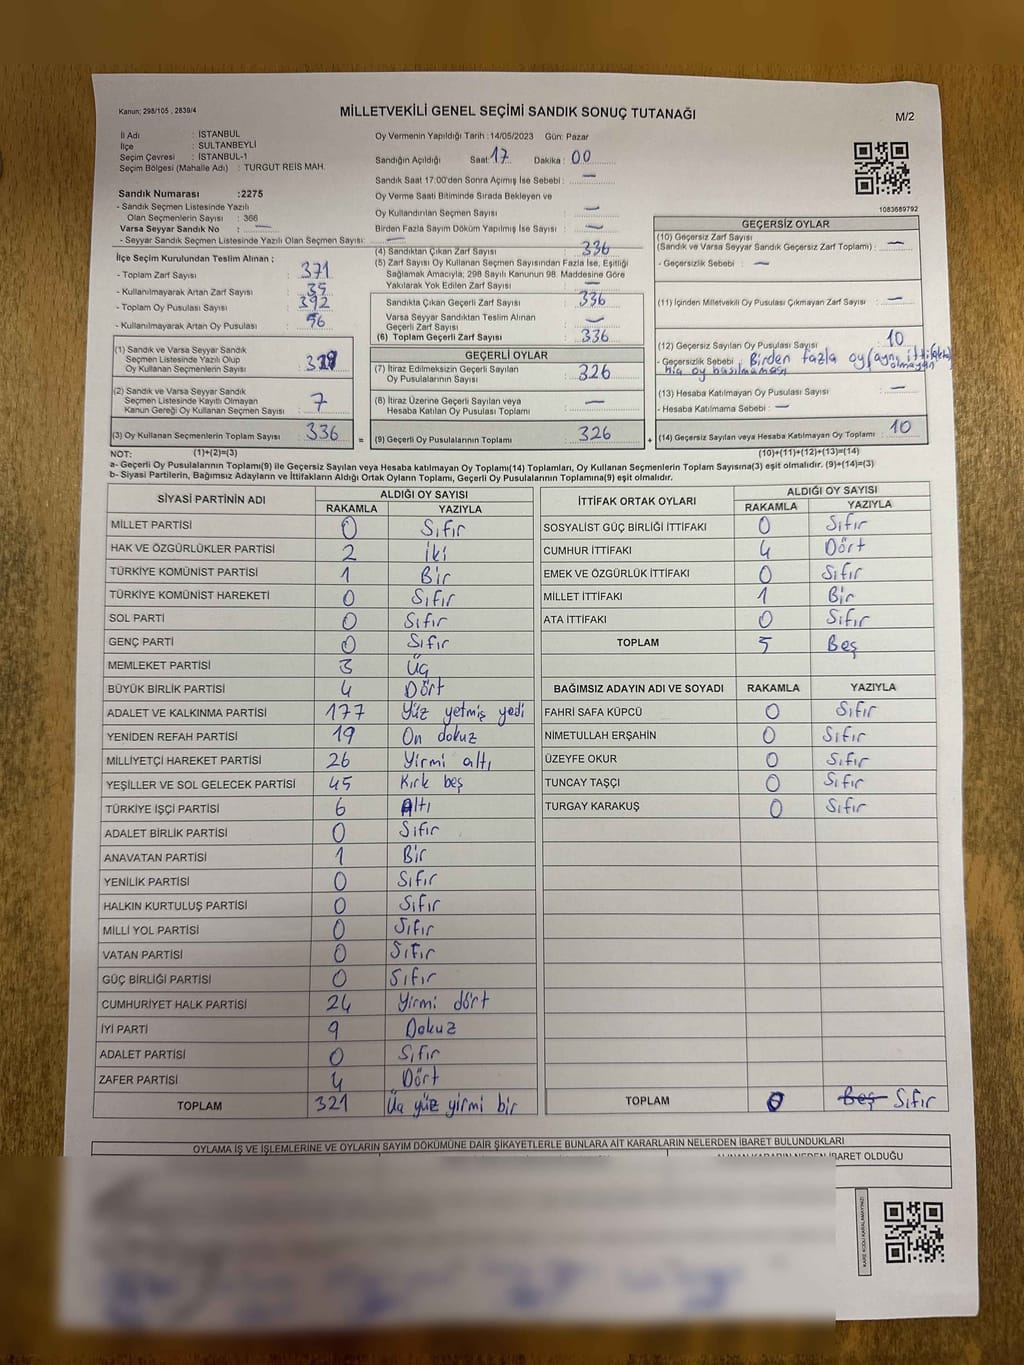 Kanun: 298/105 , 2839/4
MİLLETVEKİLİ GENEL SEÇİMİ SANDIK SONUÇ TUTANAĞI
M/2
İl Adı : İSTANBUL
İlçe : SULTANBEYLİ
Seçim Çevresi : İSTANBUL-1
Seçim Bölgesi (Mahalle Adı) : TURGUT REİS MAH.
Sandık Numarası :2275
- Sandık Seçmen Listesinde Yazılı
Olan Seçmenlerin Sayısı : 366
Varsa Seyyar Sandık No : —
- Seyyar Sandık Seçmen Listesinde Yazılı Olan Seçmen Sayısı: —
Oy Vermenin Yapıldığı Tarih : 14/05/2023 Gün: Pazar
Sandığın Açıldığı Saat: 17 Dakika : 00
Sandık Saat 17:00'den Sonra Açımış İse Sebebi : —
Oy Verme Saati Bitiminde Sırada Bekleyen ve
Oy Kullandırılan Seçmen Sayısı : —
Birden Fazla Sayım Döküm Yapılmış İse Sayısı : —
1083689792
İlçe Seçim Kurulundan Teslim Alınan ;
- Toplam Zarf Sayısı : 371
- Kullanılmayarak Artan Zarf Sayısı : 35
- Toplam Oy Pusulası Sayısı : 392
- Kullanılmayarak Artan Oy Pusulası : 56
(1) Sandık ve Varsa Seyyar Sandık
Seçmen Listesinde Yazılı Olup
Oy Kullanan Seçmenlerin Sayısı :
(2) Sandık ve Varsa Seyyar Sandık
Seçmen Listesinde Kayıtlı Olmayan
Kanun Gereği Oy Kullanan Seçmen Sayısı : 7
(3) Oy Kullanan Seçmenlerin Toplam Sayısı : 336
(4) Sandıktan Çıkan Zarf Sayısı : 336
(5) Zarf Sayısı Oy Kullanan Seçmen Sayısından Fazla İse, Eşitliği
Sağlamak Amacıyla; 298 Sayılı Kanunun 98. Maddesine Göre
Yakılarak Yok Edilen Zarf Sayısı : —
Sandıkta Çıkan Geçerli Zarf Sayısı : 336
Varsa Seyyar Sandıktan Teslim Alınan
Geçerli Zarf Sayısı : —
(6) Toplam Geçerli Zarf Sayısı : 336
GEÇERLİ OYLAR
(7) İtiraz Edilmeksizin Geçerli Sayılan
Oy Pusulalarının Sayısı : 326
(8) İtiraz Üzerine Geçerli Sayılan veya
Hesaba Katılan Oy Pusulası Toplamı : —
= (9) Geçerli Oy Pusulalarının Toplamı : 326 +
GEÇERSİZ OYLAR
(10) Geçersiz Zarf Sayısı
(Sandık ve Varsa Seyyar Sandık Geçersiz Zarf Toplamı) : —
- Geçersizlik Sebebi : —
(11) İçinden Milletvekili Oy Pusulası Çıkmayan Zarf Sayısı : —
(12) Geçersiz Sayılan Oy Pusulası Sayısı : 10
- Geçersizlik Sebebi : Birden fazla oy (aynı ittifakta olmayan)
hiç oy basılmaması
(13) Hesaba Katılmayan Oy Pusulası Sayısı : —
- Hesaba Katılmama Sebebi : —
(14) Geçersiz Sayılan veya Hesaba Katılmayan Oy Toplamı : 10
NOT: (1)+(2)=(3) (10)+(11)+(12)+(13)=(14)
a- Geçerli Oy Pusulalarının Toplamı(9) ile Geçersiz Sayılan veya Hesaba katılmayan Oy Toplamı(14) Toplamları, Oy Kullanan Seçmenlerin Toplam Sayısına(3) eşit olmalıdır. (9)+(14)=(3)
b- Siyasi Partilerin, Bağımsız Adayların ve İttifakların Aldığı Ortak Oyların Toplamı, Geçerli Oy Pusulalarının Toplamına(9) eşit olmalıdır.
SİYASİ PARTİNİN ADI ALDIĞI OY SAYISI
RAKAMLA YAZIYLA
MİLLET PARTİSİ 0 Sıfır
HAK VE ÖZGÜRLÜKLER PARTİSİ 2 İki
TÜRKİYE KOMÜNİST PARTİSİ 1 Bir
TÜRKİYE KOMÜNİST HAREKETİ 0 Sıfır
SOL PARTİ 0 Sıfır
GENÇ PARTİ 0 Sıfır
MEMLEKET PARTİSİ 3 Üç
BÜYÜK BİRLİK PARTİSİ 4 Dört
ADALET VE KALKINMA PARTİSİ 177 Yüz yetmiş yedi
YENİDEN REFAH PARTİSİ 19 On dokuz
MİLLİYETÇİ HAREKET PARTİSİ 26 Yirmi altı
YEŞİLLER VE SOL GELECEK PARTİSİ 45 Kırk beş
TÜRKİYE İŞÇİ PARTİSİ 6 Altı
ADALET BİRLİK PARTİSİ 0 Sıfır
ANAVATAN PARTİSİ 1 Bir
YENİLİK PARTİSİ 0 Sıfır
HALKIN KURTULUŞ PARTİSİ 0 Sıfır
MİLLİ YOL PARTİSİ 0 Sıfır
VATAN PARTİSİ 0 Sıfır
GÜÇ BİRLİĞİ PARTİSİ 0 Sıfır
CUMHURİYET HALK PARTİSİ 24 Yirmi dört
İYİ PARTİ 9 Dokuz
ADALET PARTİSİ 0 Sıfır
ZAFER PARTİSİ 4 Dört
TOPLAM 321 Üç yüz yirmi bir
İTTİFAK ORTAK OYLARI ALDIĞI OY SAYISI
RAKAMLA YAZIYLA
SOSYALİST GÜÇ BİRLİĞİ İTTİFAKI 0 Sıfır
CUMHUR İTTİFAKI 4 Dört
EMEK VE ÖZGÜRLÜK İTTİFAKI 0 Sıfır
MİLLET İTTİFAKI 1 Bir
ATA İTTİFAKI 0 Sıfır
TOPLAM 5 Beş
BAĞIMSIZ ADAYIN ADI VE SOYADI RAKAMLA YAZIYLA
FAHRİ SAFA KÜPCÜ 0 Sıfır
NİMETULLAH ERŞAHİN 0 Sıfır
ÜZEYFE OKUR 0 Sıfır
TUNCAY TAŞÇI 0 Sıfır
TURGAY KARAKUŞ 0 Sıfır
TOPLAM 0 Beş Sıfır
OYLAMA İŞ VE İŞLEMLERİNE VE OYLARIN SAYIM DÖKÜMÜNE DAİR ŞİKAYETLERLE BUNLARA AİT KARARLARIN NELERDEN İBARET BULUNDUKLARI
ALINAN KARARIN NEDEN İBARET OLDUĞU
KARE KODU KARALAMAYINIZ!